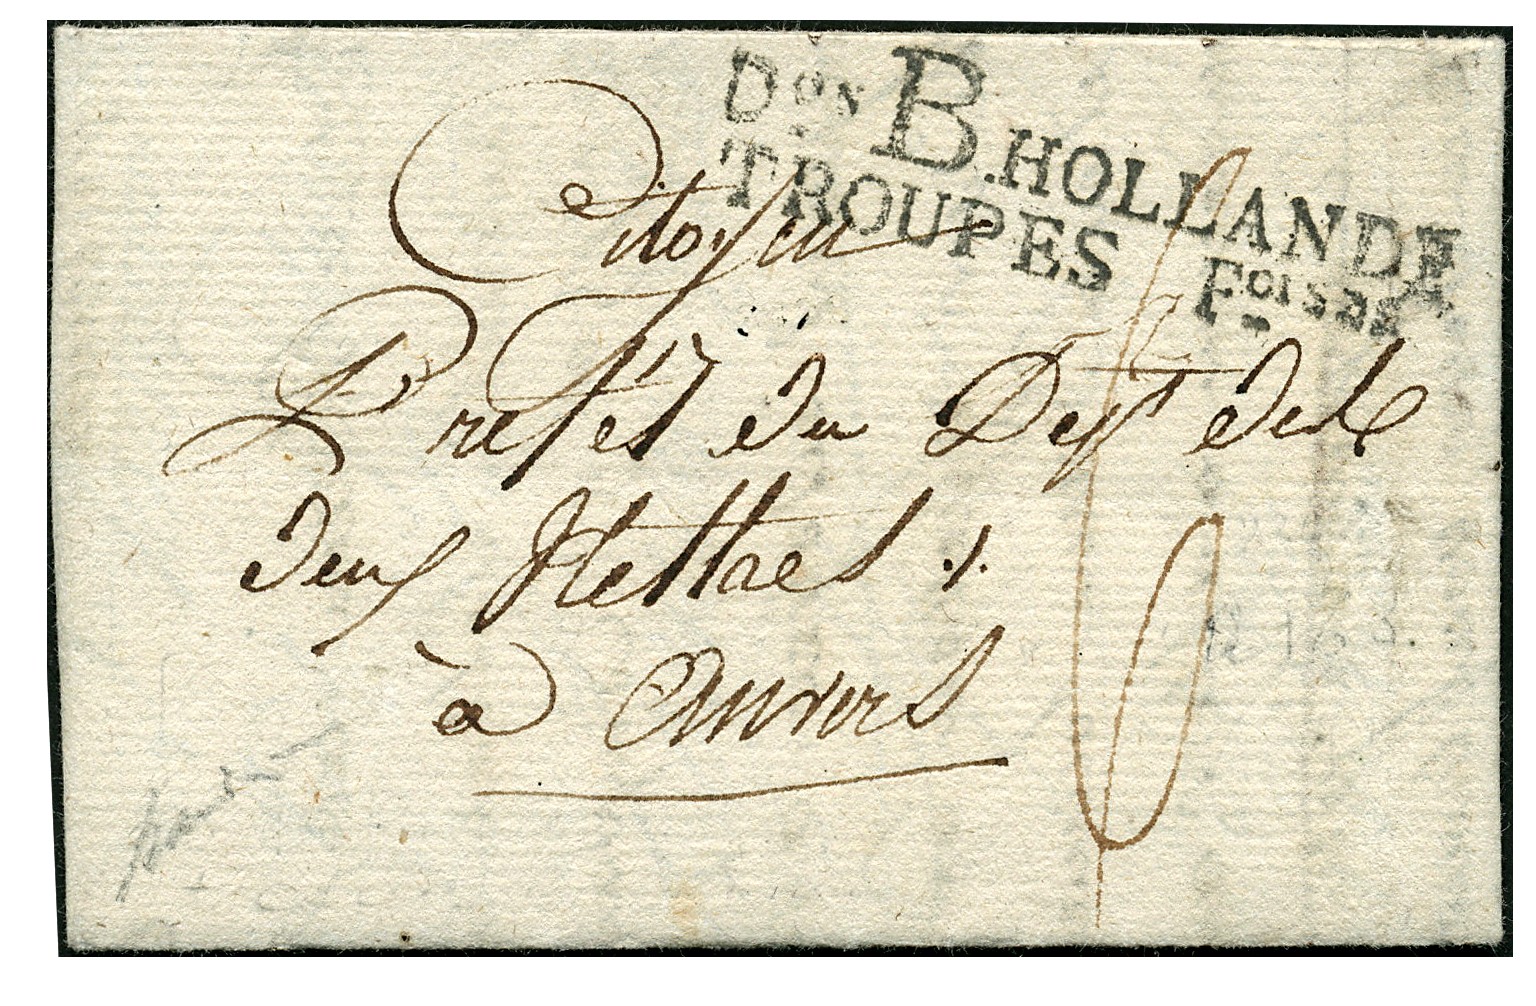 Dos B.HOLLANDE
TROUPES Foises
Citoyen
Prefét du Dept des
deux Nethes ./.
à Anvers